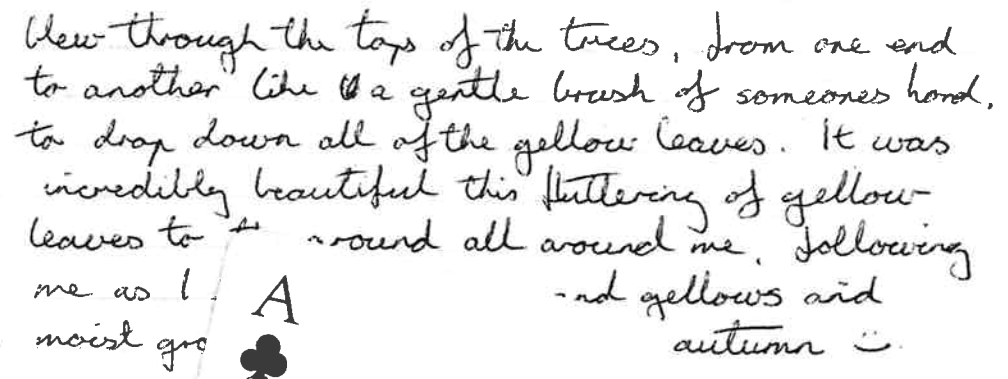 blew through the tops of the trees, from one end
to another like a gentle brush of someones hand,
to drop down all of the yellow leaves. It was
incredibly beautiful this fluttering of yellow
leaves to all around me, following
me as I yellows and
moist autumn :)
A